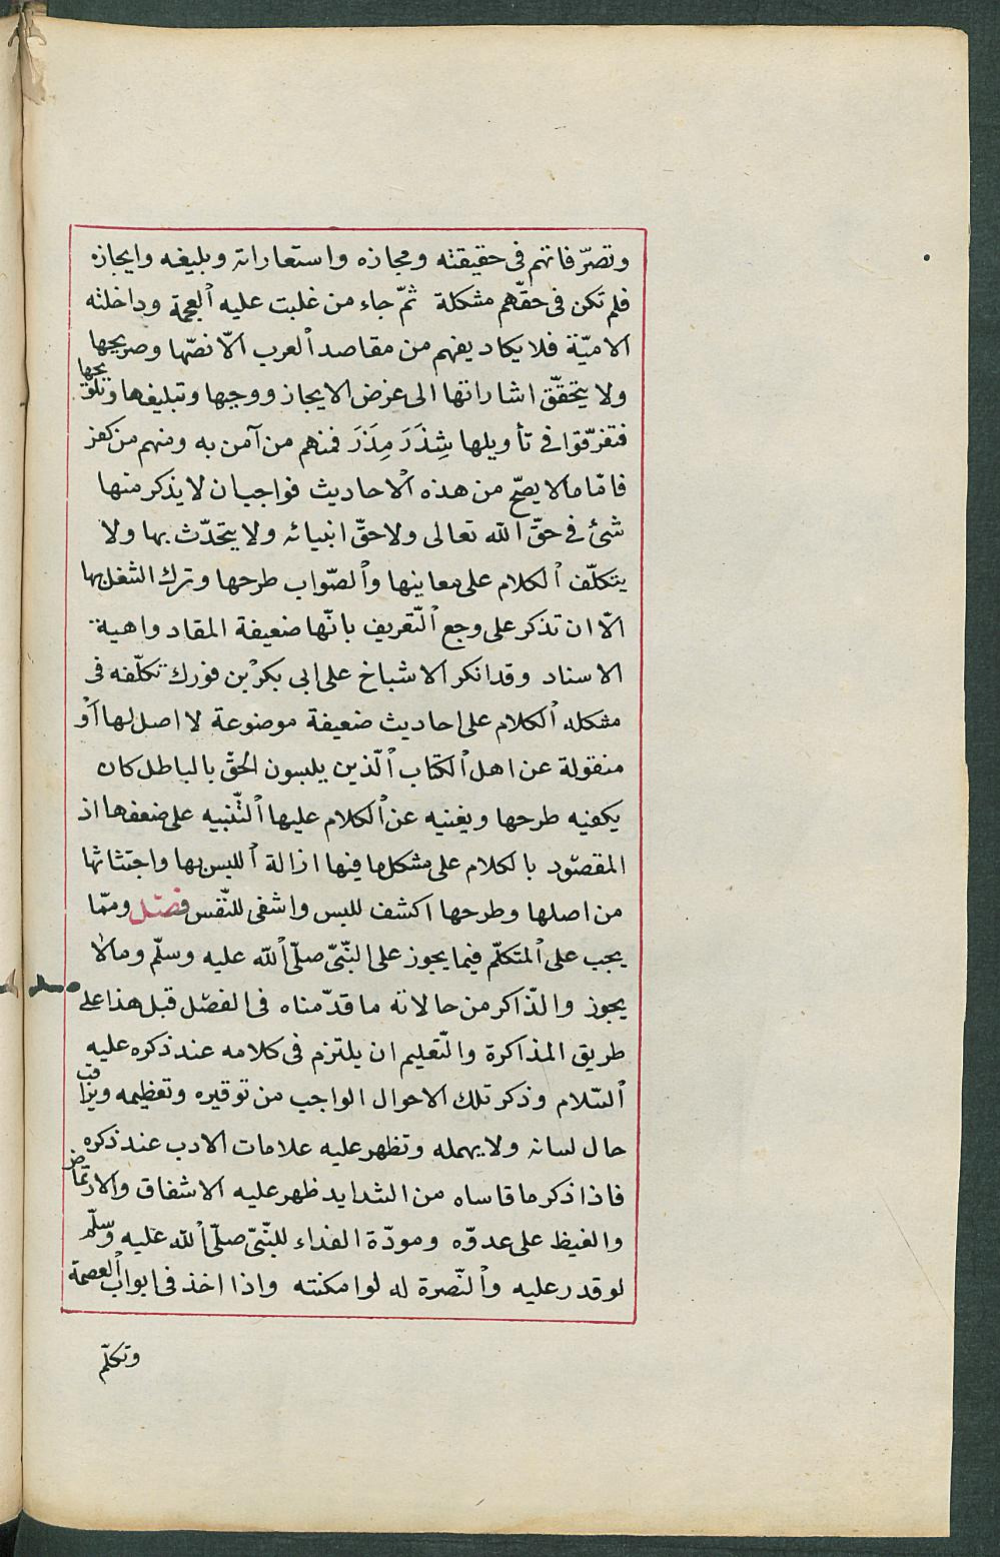 وتصرّفاتهم فى حقيقته ومجازه واستعاراته وبليغه وايجازه
فلم تكن فى حقّهم مشكلة ثمّ جاء من غلبت عليه العجمة وداخلته
الاميّة فلا يكاد يفهم من مقاصد العرب الّا نصّها وصريحها
ولا يتحقّق اشاراتها الى غرض الايجاز ووحيها وتبليغها وتلويحها
فتفرّقوا فى تأويلها شِذَرَ مِذَرَ فمنهم من آمن به ومنهم من كفر
فامّا مالا يصحّ من هذه الاحاديث فواجب ان لا يذكر منها
شئ فى حقّ الله تعالى ولا حقّ انبيائه ولا يتحدّث بها ولا
يتكلّف الكلام على معاينها والصّواب طرحها وترك الشغل بها
الّا ان تذكر على وجع التّعريف بانّها ضعيفة المقاد واهية
الاسناد وقد انكر الاشياخ على ابى بكر بن فورك تكلّفه فى
مشكله الكلام على احاديث ضعيفة موضوعة لا اصل لها أو
منقولة عن اهل الكتاب الّذين يلبسون الحقّ بالباطل كان
يكفيه طرحها ويغنيه عن الكلام عليها التّنبيه على ضعفها اذ
المقصود بالكلام على مشكل ما فيها ازالة اللبس بها واجتثاثها
من اصلها وطرحها اكشف للبس واشفى للنّفس فصل وممّا
يجب على المتكلّم فيما يجوز على النّبىّ صلّى الله عليه وسلّم ومالا
يجوز والذّاكر من حالاته ما قدّمناه فى الفصل قبل هذا على
طريق المذاكرة والتّعليم ان يلتزم فى كلامه عند ذكره عليه
السّلام وذكر تلك الاحوال الواجب من توقيره وتعظيمه ويراقب
حال لسانه ولا يهمله وتظهر عليه علامات الادب عند ذكره
فاذا ذكر ما قاساه من الشدايد ظهر عليه الاشفاق والارتماض
والغيظ على عدوّه ومودّة الفداء للنّبىّ صلّى الله عليه وسلّم
لو قدر عليه والنّصرة له لو امكنته واذا اخذ فى ابواب العصمة
وتكلّم